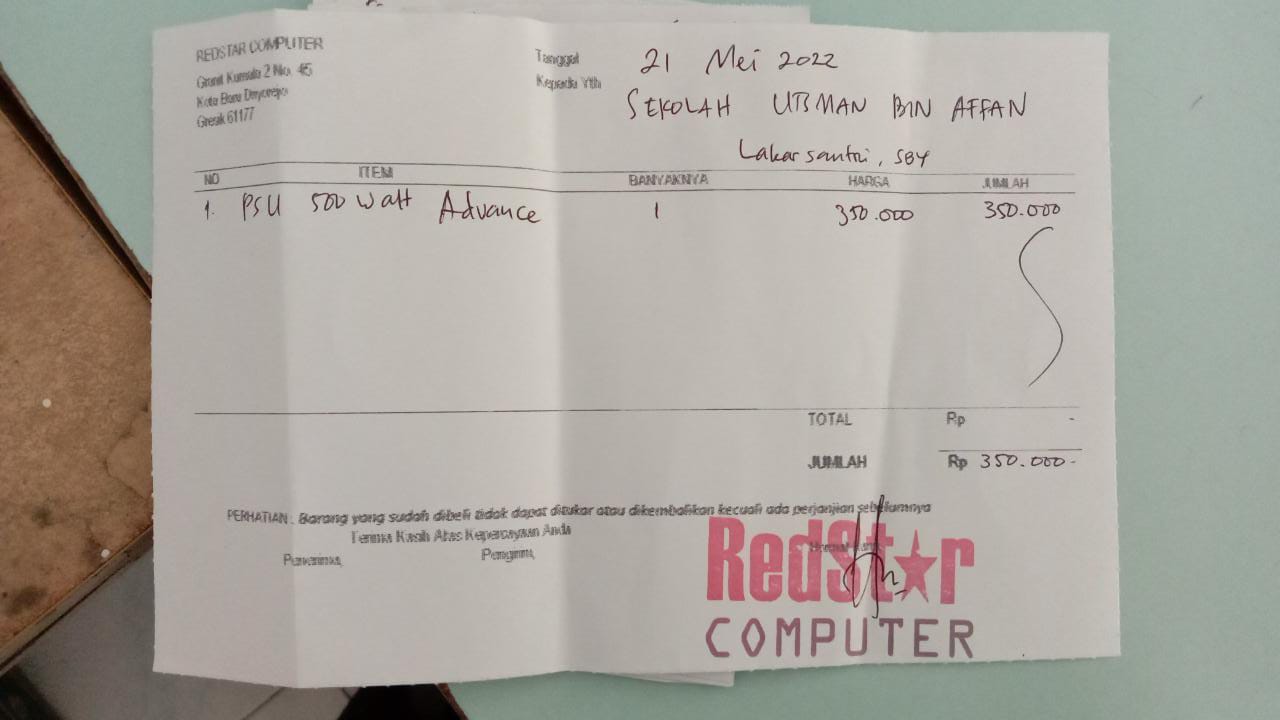 REDSTAR COMPUTER
Granit Kumala 2 No. 45
Kota Baru Driyorejo
Gresik 61177
Tanggal 21 Mei 2022
Kepada Yth
SEKOLAH UTSMAN BIN AFFAN
Lakarsantri, SBY
NO ITEM BANYAKNYA HARGA JUMLAH
1. PSU 500 Watt Advance 1 350.000 350.000
TOTAL Rp -
JUMLAH Rp 350.000-
PERHATIAN : Barang yang sudah dibeli tidak dapat ditukar atau dikembalikan kecuali ada perjanjian sebelumnya
Terima Kasih Atas Kepercayaan Anda
Penerima, Pengirim, Hormat Kami,
RedStar
COMPUTER